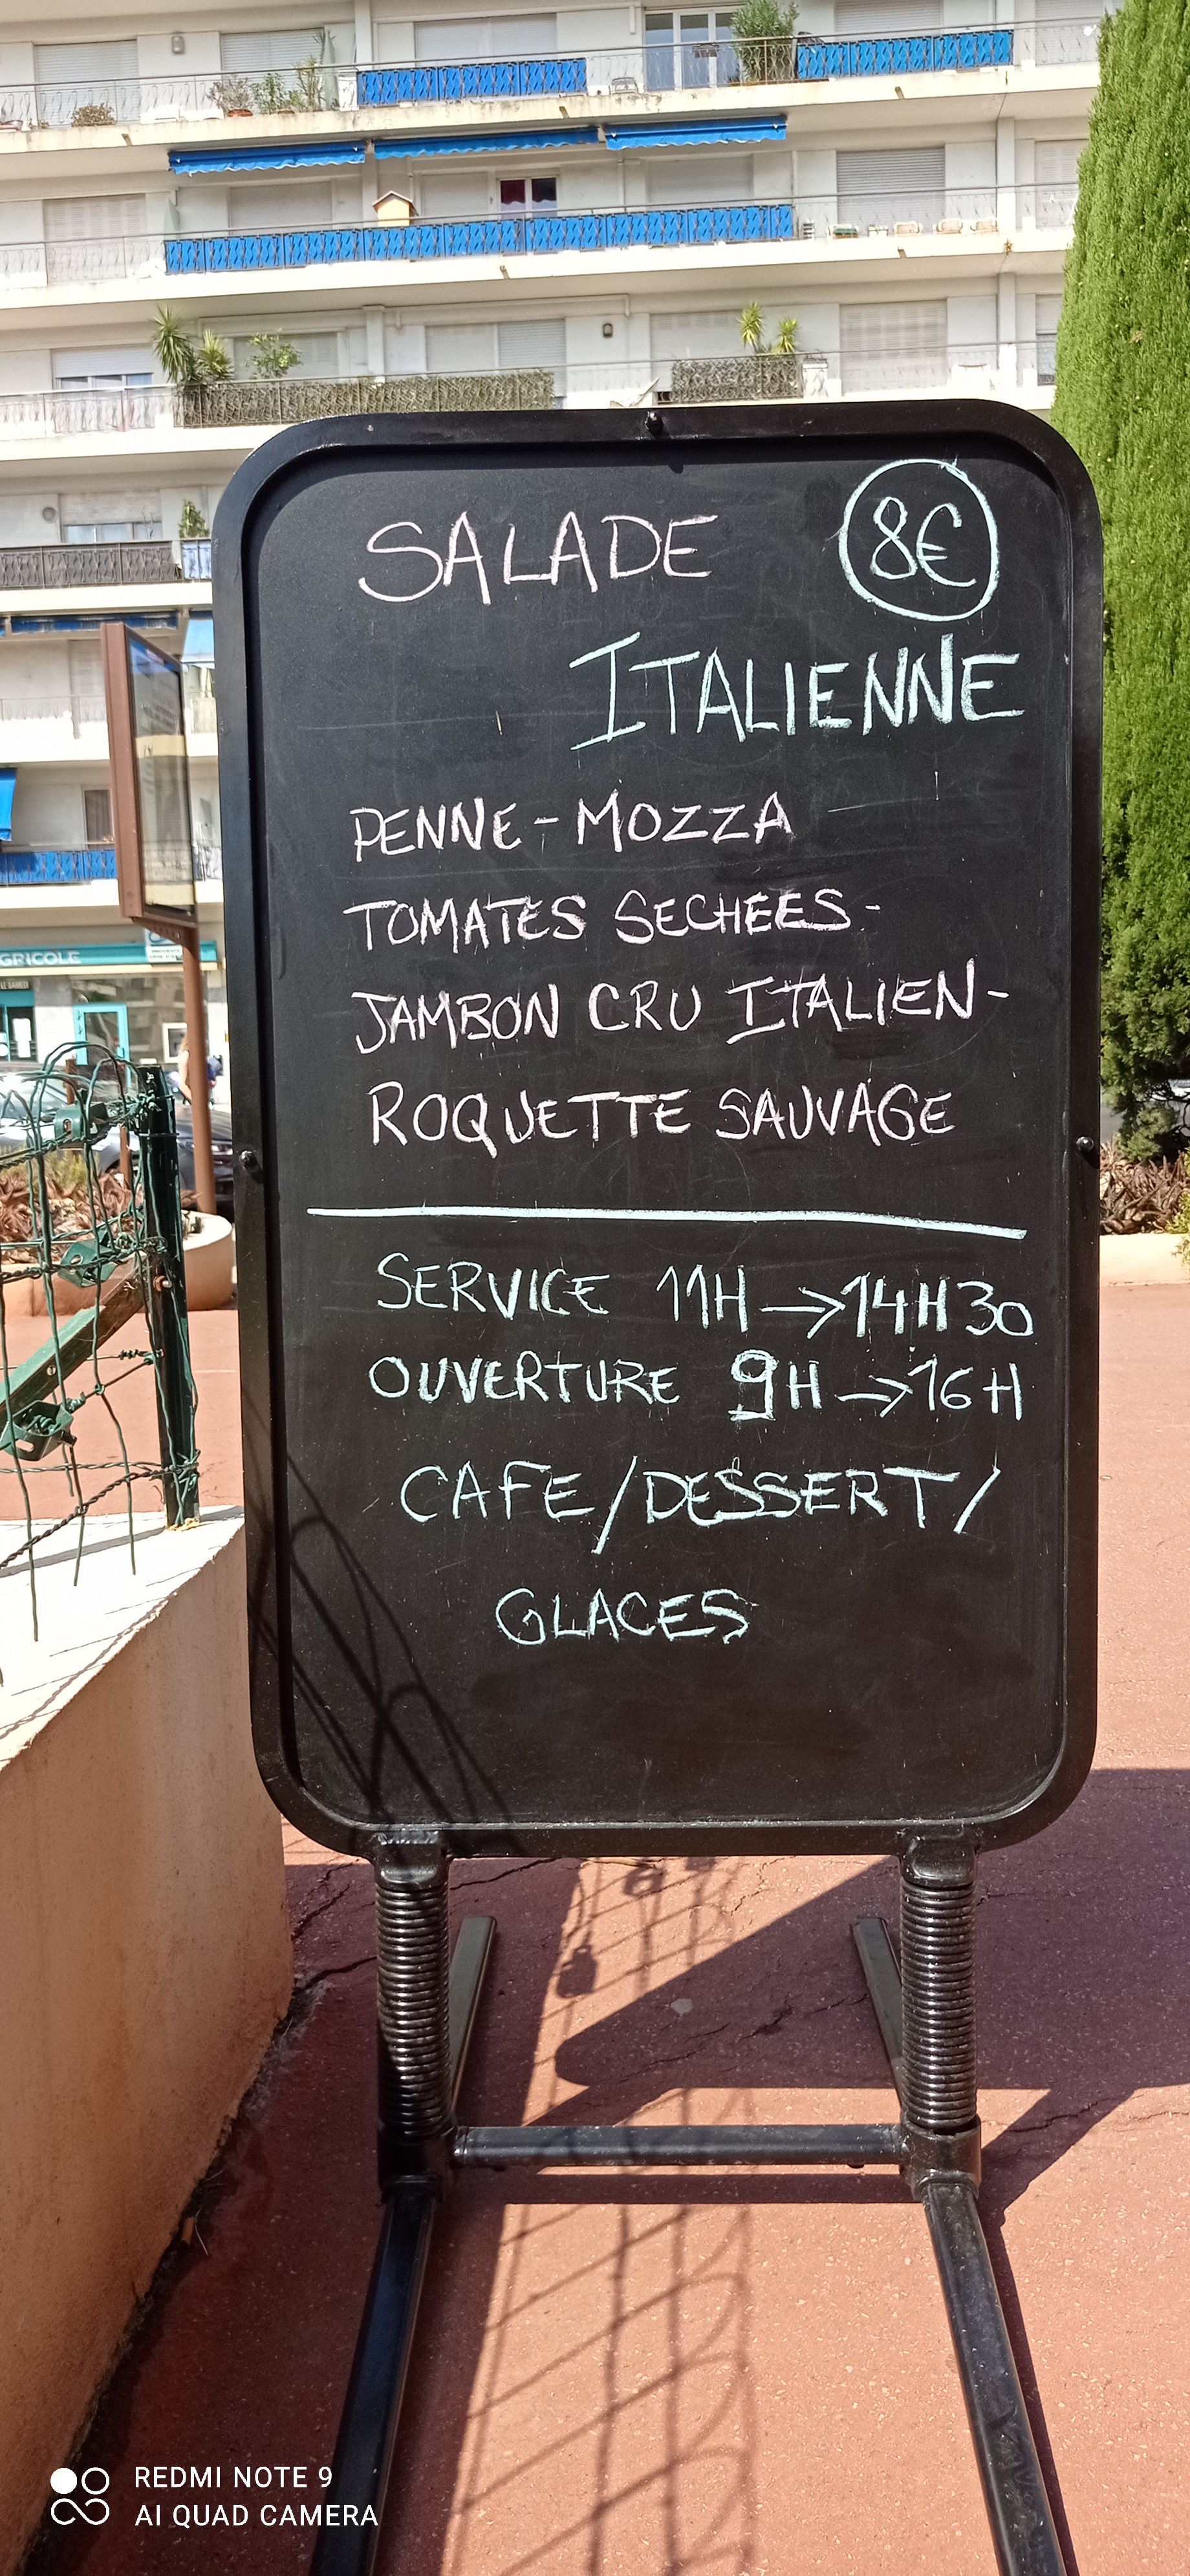 SALADE 8€
ITALIENNE
PENNE-MOZZA
TOMATES SECHEES-
JAMBON CRU ITALIEN-
ROQUETTE SAUVAGE
SERVICE 11H →14H30
OUVERTURE 9H →16H
CAFE/DESSERT/
GLACES
GRICOLE
LE SAMEDI
REDMI NOTE 9
AI QUAD CAMERA